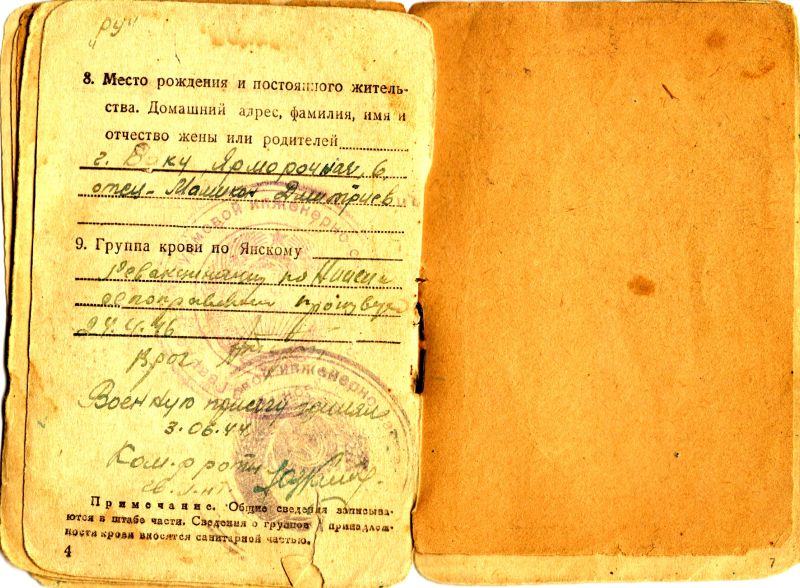 „ру"
8. Место рождения и постоянного житель-
ства. Домашний адрес, фамилия, имя и
отчество жены или родителей
г. Баку Ярморочная, 6,
отец - Мамикон Дмитриев
9. Группа крови по Янскому
по
произвед
24.4.46
Врач
Военную присягу принял
3.06.44
Ком-р роты
св. л-нт
Примечание. Общие сведения записыва-
ются в штабе части. Сведения о группов принадлеж-
ности крови вносятся санитарной частью.
4
7